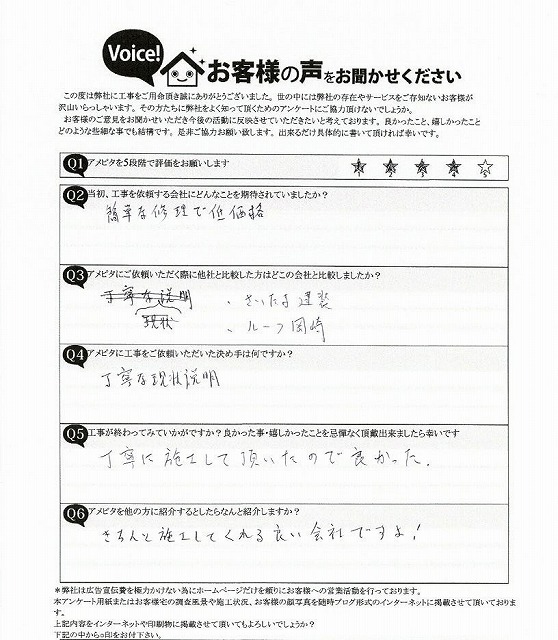 Voice! お客様の声をお聞かせください
この度は弊社に工事をご用命頂き誠にありがとうございました。世の中には弊社の存在やサービスをご存知ないお客様が
沢山いらっしゃいます。その方たちに弊社をよく知って頂くためのアンケートにご協力頂けないでしょうか。
お客様のご意見をお聞かせいただき今後の活動に反映させていただきたいと考えております。良かったこと、嬉しかったこと
どのような些細な事でも結構です。是非ご協力お願い致します。出来るだけ具体的に書いて頂ければ幸いです。
Q1 アメピタを5段階で評価をお願いします
1 2 3 4 5
Q2 当初、工事を依頼する会社にどんなことを期待されていましたか?
簡単な修理で低価格
Q3 アメピタにご依頼いただく際に他社と比較した方はどこの会社と比較しましたか?
丁寧な説明 ・さいたま建装
現状 ・ルーフ岡崎
Q4 アメピタに工事をご依頼いただいた決め手は何ですか?
丁寧な現状説明
Q5 工事が終わってみていかがですか?良かった事・嬉しかったことを忌憚なく頂戴出来ましたら幸いです
丁寧に施工して頂いたので良かった.
Q6 アメピタを他の方に紹介するとしたらなんと紹介しますか?
きちんと施工してくれる良い会社ですよ!
*弊社は広告宣伝費を極力かけない為にホームページだけを頼りにお客様への営業活動を行っております。
本アンケート用紙またはお客様宅の調査風景や施工状況、お客様の顔写真を随時ブログ形式のインターネットに掲載させて頂いております。
上記内容をインターネットや印刷物に掲載させて頂いてもよろしいでしょうか?
下記の中から○印をお付け下さい。